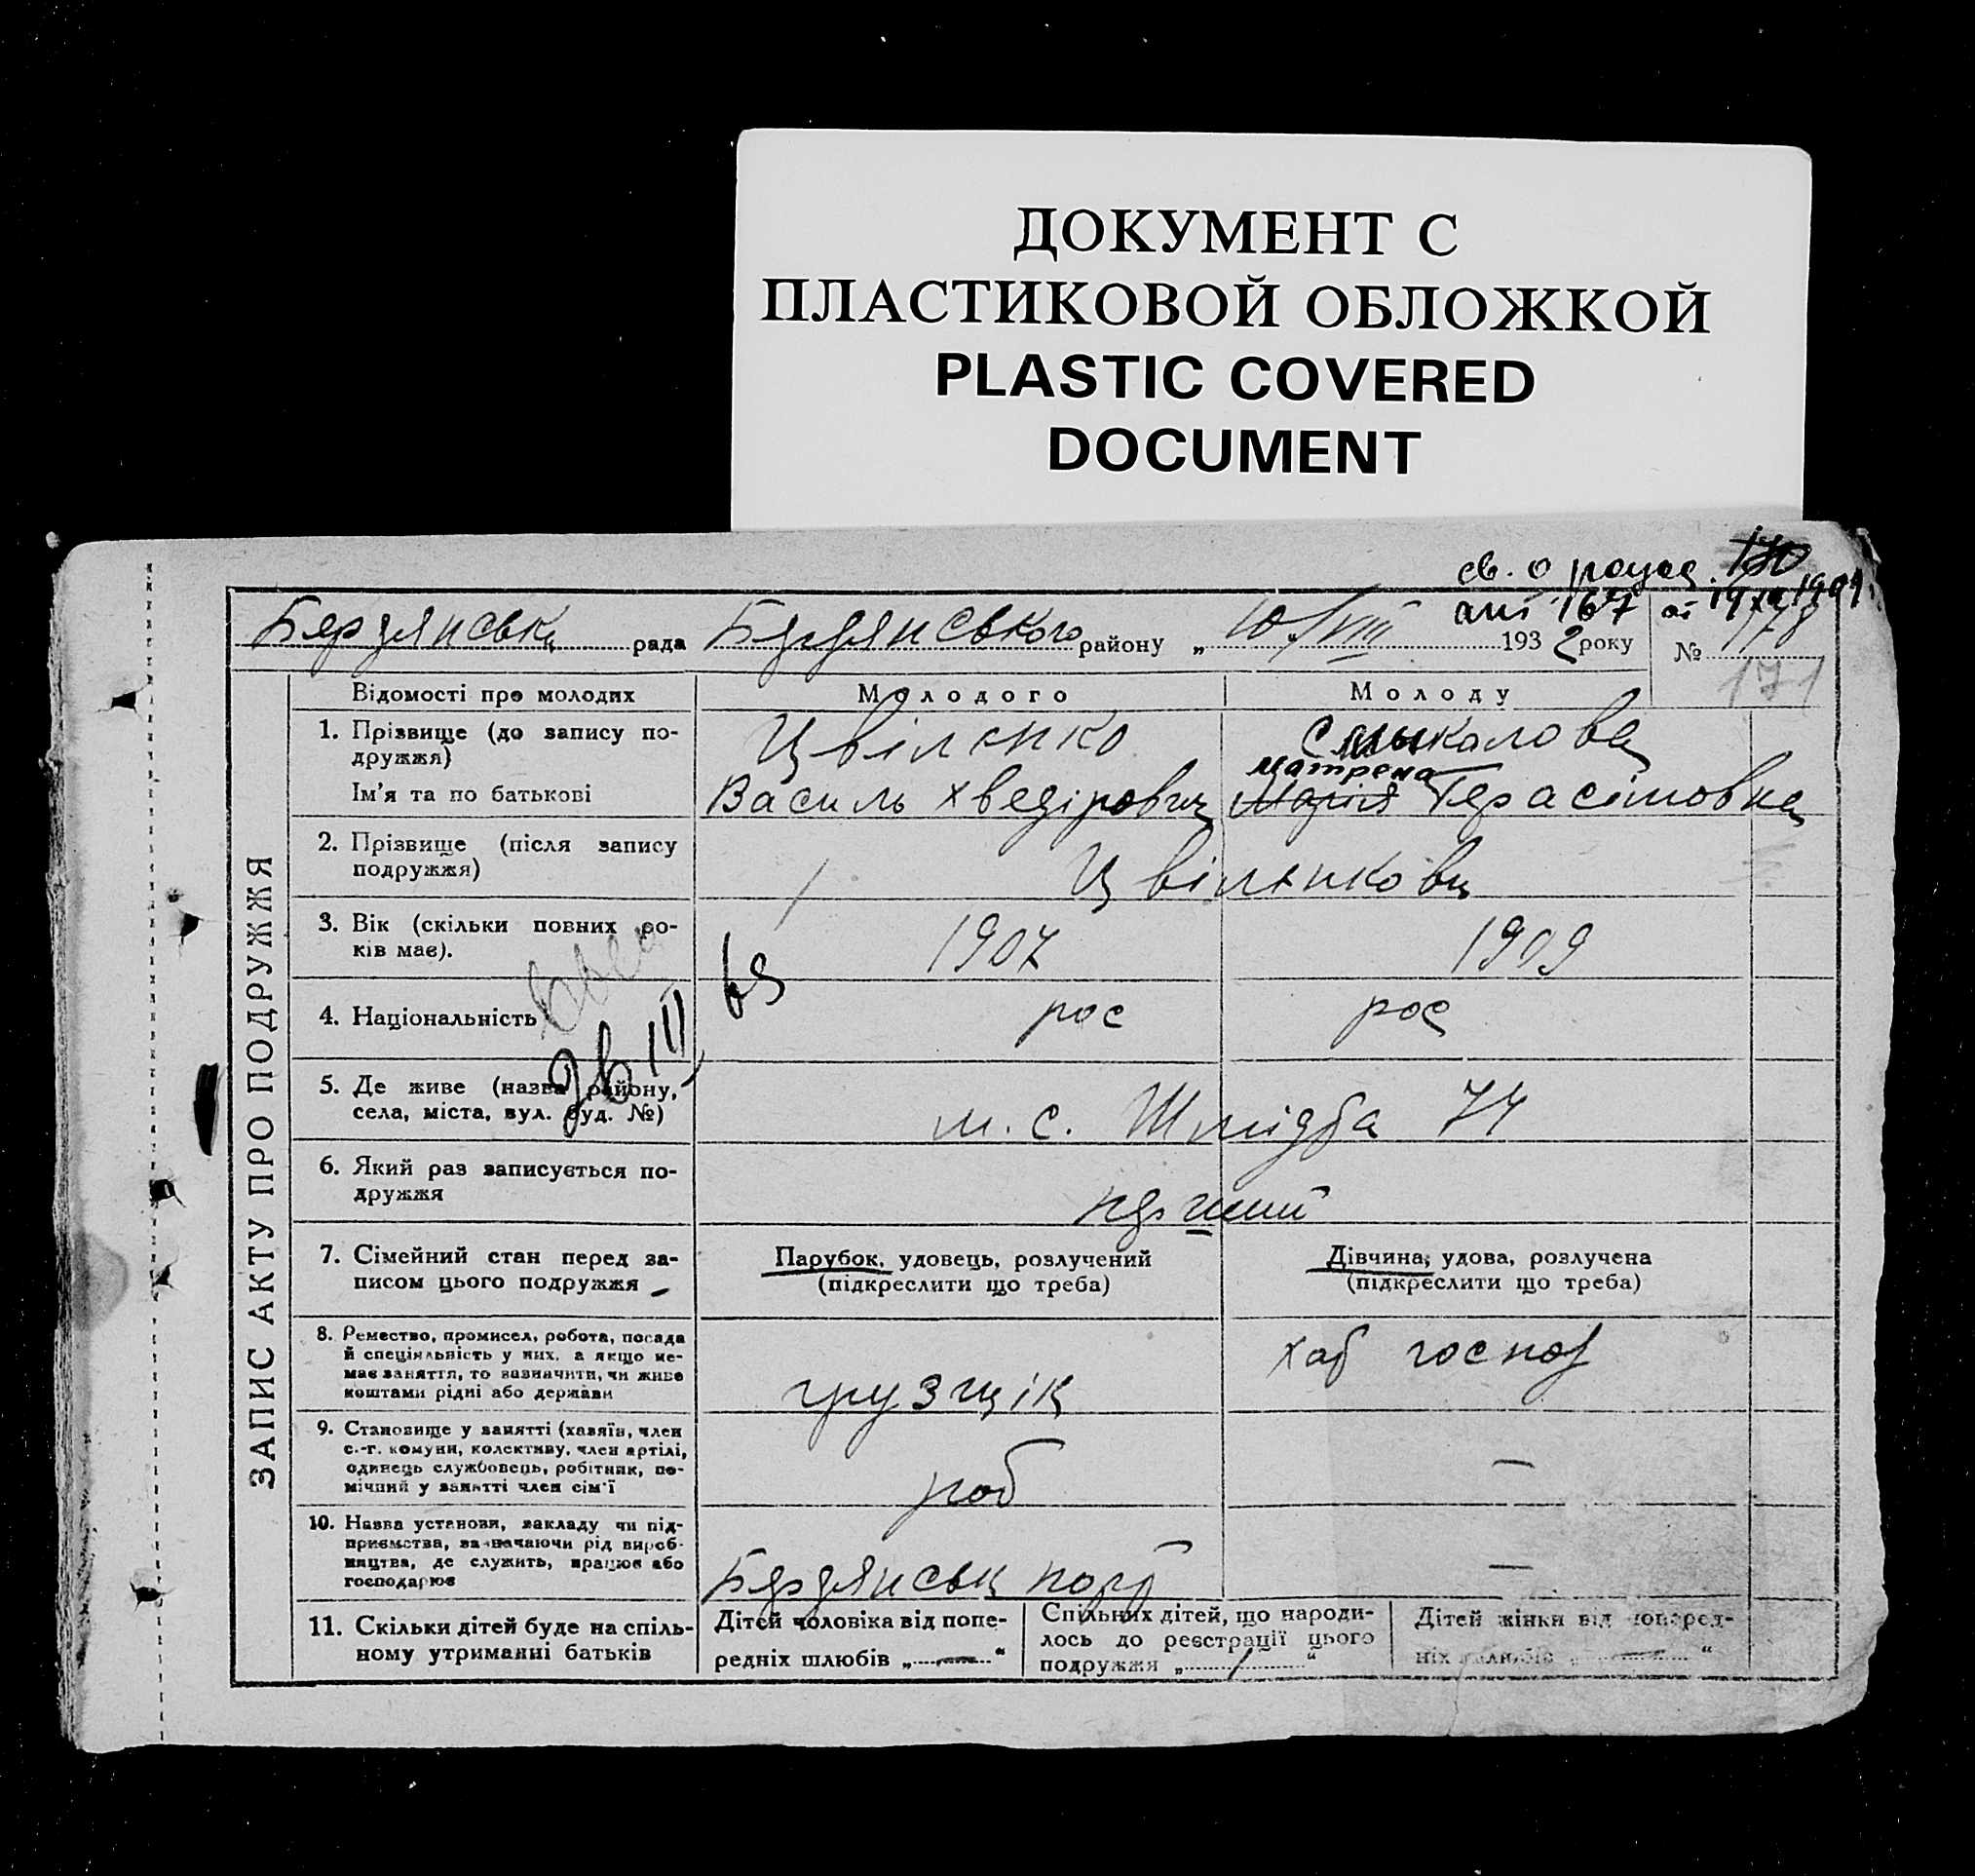 ДОКУМЕНТ С
ПЛАСТИКОВОЙ ОБЛОЖКОЙ
PLASTIC COVERED
DOCUMENT
св. о рожд. 170
акт 167 от 1909
Бердянська рада Бердянського району „ 10/VIII 1932 року № 178
171
ЗАПИС АКТУ ПРО ПОДРУЖЖЯ
Відомості про молодих
Молодого
Молоду
1. Прізвище (до запису по-
дружжя)
Ім'я та по батькові
Цвіленко
Василь Хведірович
Смыкалова
Матрена
Марія Герасімовна
2. Прізвище (після запису
подружжя)
Цвіленкови
3. Вік (скільки повних ро-
ків має).
1907
1909
4. Національність
рос
рос
26 III, 69
5. Де живе (назва району,
села, міста, вул. буд. №)
м. с. Шмідта 74
6. Який раз записується по-
дружжя
перший
7. Сімейний стан перед за-
писом цього подружжя
Парубок, удовець, розлучений
(підкреслити що треба)
Дівчина, удова, розлучена
(підкреслити що треба)
8. Ремество, промисел, робота, посада
й спеціяльність у них, а якщо не-
має заняття, то зазначити, чи живе
коштами рідні або держави
грузщік
хаб господ
9. Становище у занятті (хазяїн, член
с.-г. комуни, колективу, член артілі,
одинець службовець, робітник, по-
мічний у занятті член сім'ї
роб
—
10. Назва установи, закладу чи під-
приємства, зазначаючи рід вироб-
ництва, де служить, працює або
господарює
Бердянськ порт
—
11. Скільки дітей буде на спіль-
ному утриманні батьків
Дітей чоловіка від попе-
редніх шлюбів „ — “
Спільних дітей, що народи-
лось до реєстрації цього
подружжя „ / “
Дітей жінки від поперед-
ніх шлюбів „ — “